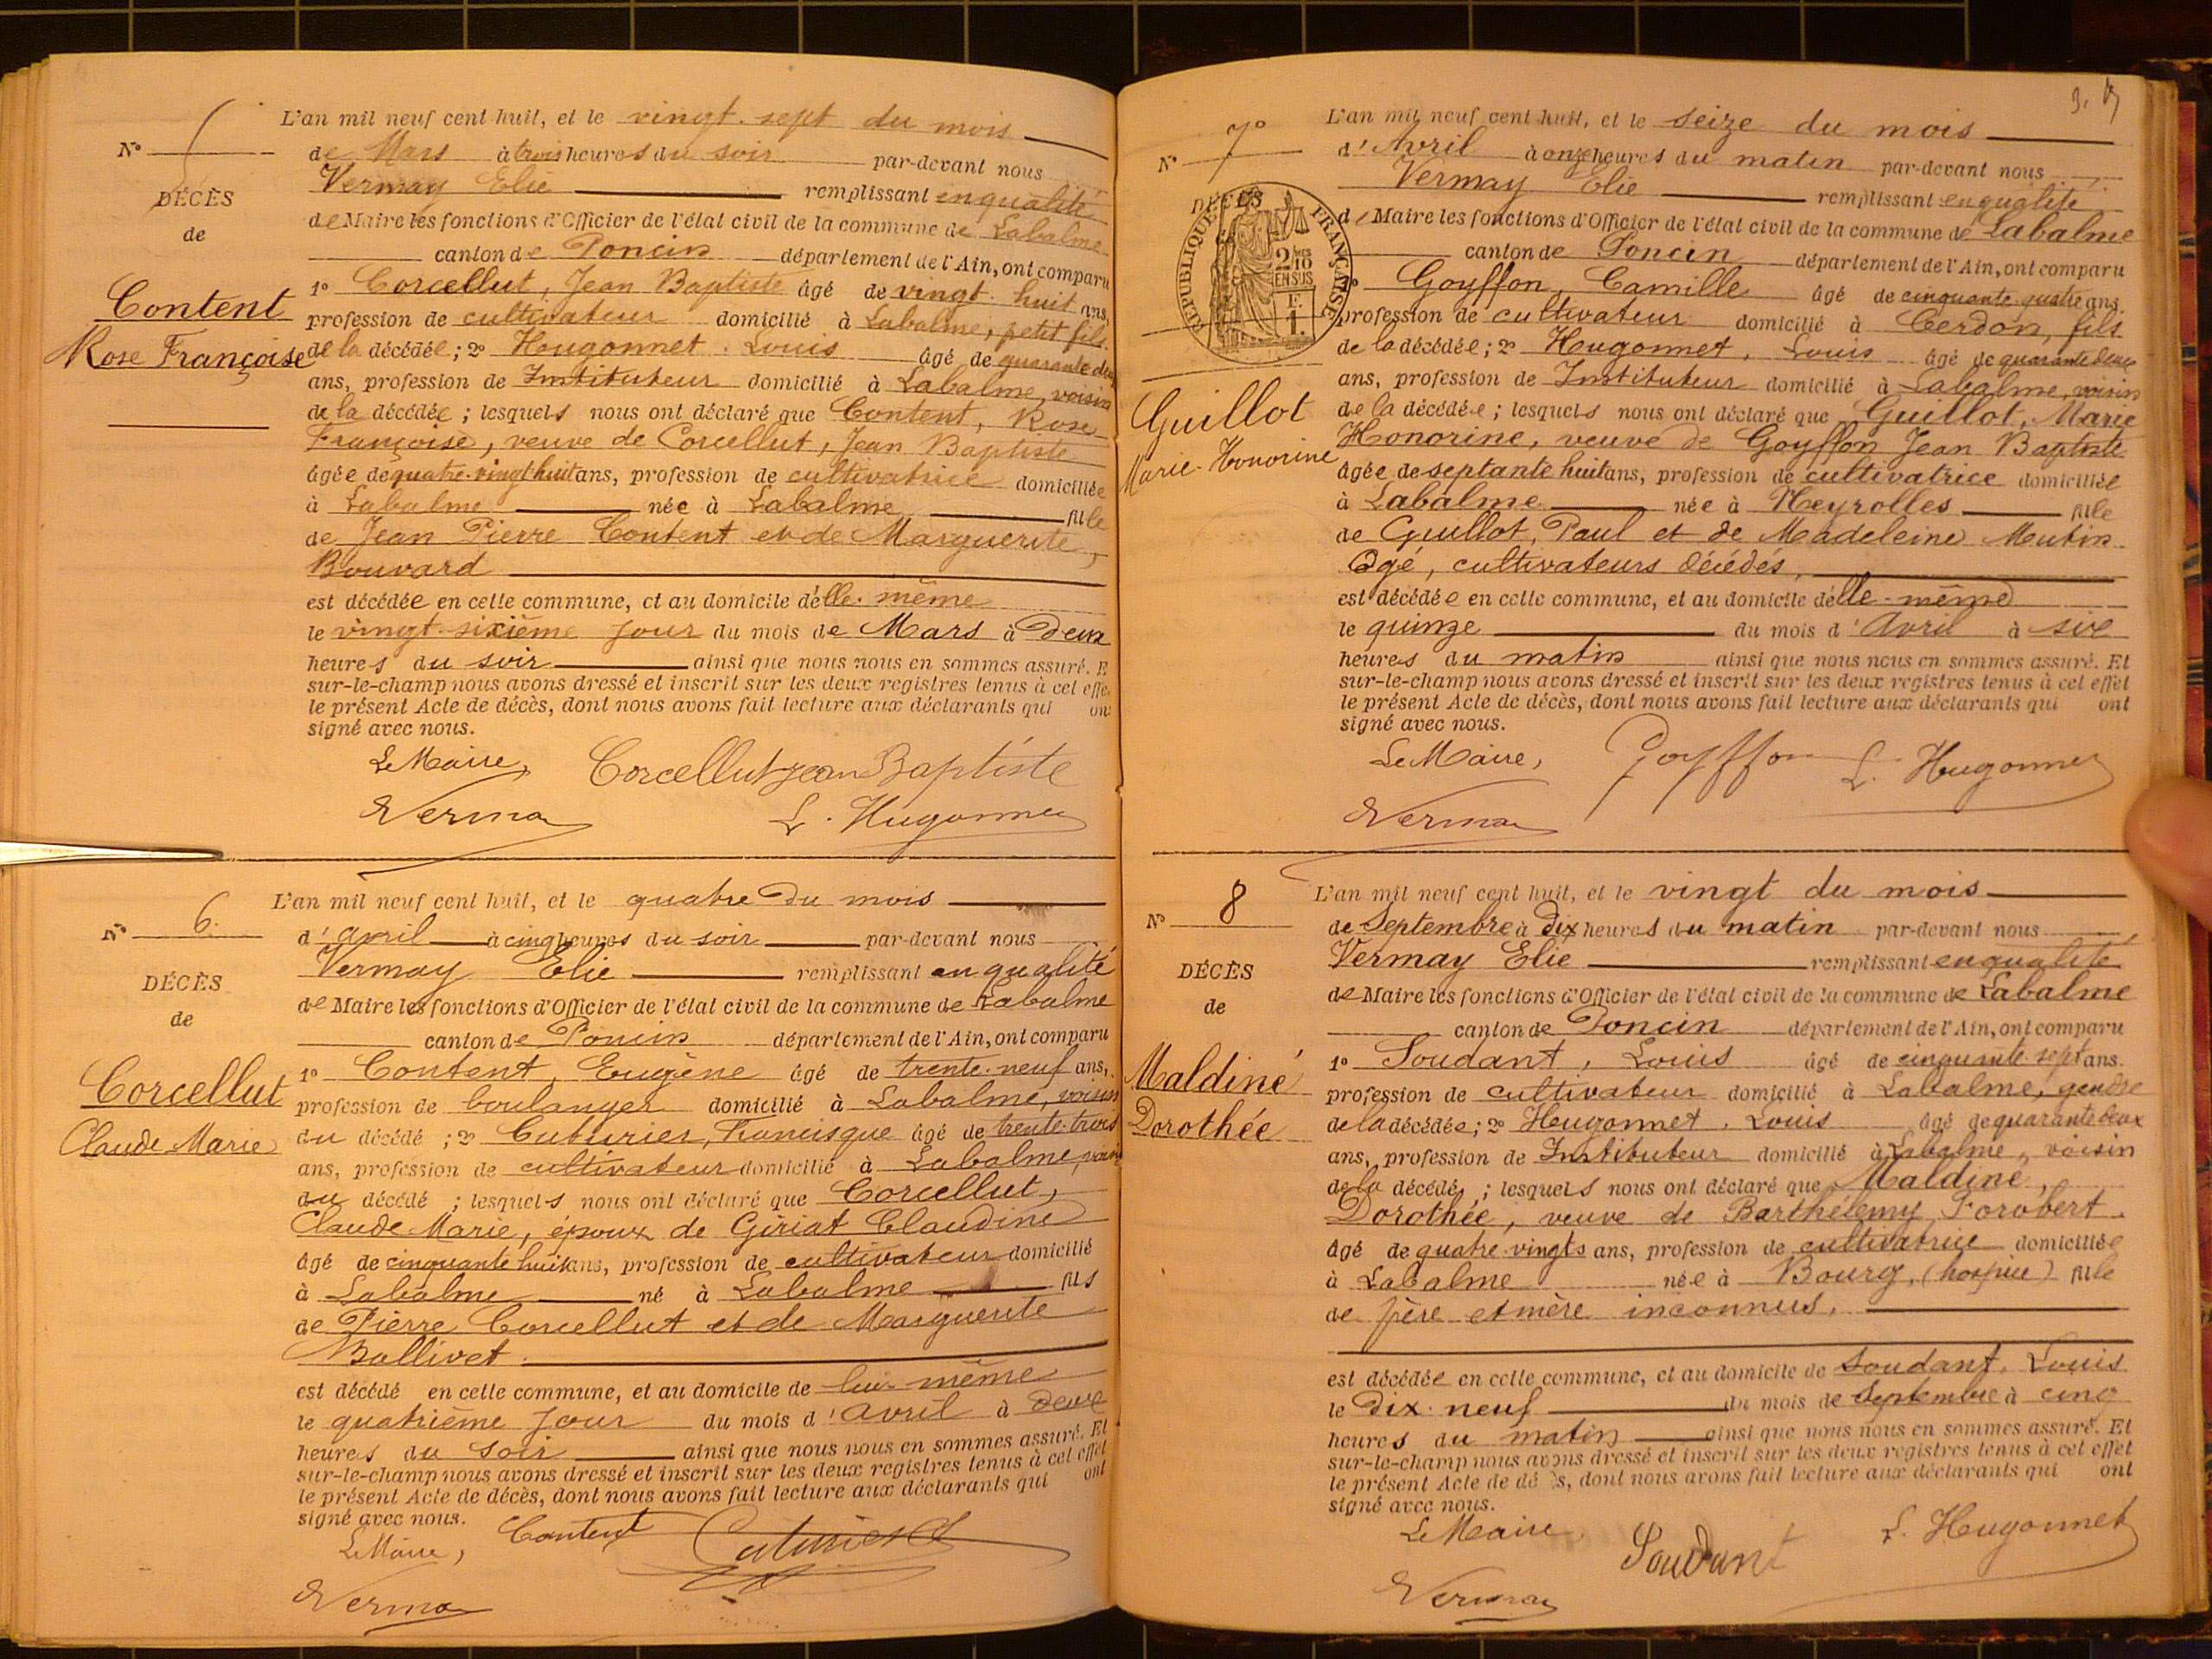 L'an mil neuf cent huit, et le vingt-sept du mois
N°
de Mars à trois heures du soir par-devant nous
Vermay Elie remplissant en qualité
DÉCÈS
de Maire les fonctions d'Officier de l'état civil de la commune de Labalme
de
canton de Poncin département de l'Ain, ont comparu
1° Corcellut, Jean Baptiste âgé de vingt-huit ans,
Content
profession de cultivateur domicilié à Labalme, petit fils
Rose Françoise
de la décédée; 2° Hugonnet, Louis âgé de quarante deux
ans, profession de Instituteur domicilié à Labalme, voisin
de la décédée; lesquels nous ont déclaré que Content, Rose
Françoise, veuve de Corcellut, Jean Baptiste
âgée de quatre-vingt huit ans, profession de cultivatrice domiciliée
à Labalme née à Labalme fille
de Jean Pierre Content et de Marguerite
Bouvard
est décédée en cette commune, et au domicile d'elle-même
le vingt-sixième jour du mois de Mars à deux
heures du soir ainsi que nous nous en sommes assuré. E
sur-le-champ nous avons dressé et inscrit sur les deux registres tenus à cet effe
le présent Acte de décès, dont nous avons fait lecture aux déclarants qui on
signé avec nous.
Le Maire, Corcellut Jean Baptiste
L. Hugonnet
L'an mil neuf cent huit, et le quatre du mois
N° 6.
d'avril à cinq heures du soir par-devant nous
Vermay Elie remplissant en qualité
DÉCÈS
de Maire les fonctions d'Officier de l'état civil de la commune de Labalme
de
canton de Poncin département de l'Ain, ont comparu
1° Content, Eugène âgé de trente-neuf ans,
Corcellut
profession de boulanger domicilié à Labalme, voisin
Claude Marie
du décédé; 2° Cuturier, Francisque âgé de trente-trois
ans, profession de cultivateur domicilié à Labalme, voisin
du décédé; lesquels nous ont déclaré que Corcellut,
Claude Marie, époux de Giriat Claudine
âgé de cinquante huit ans, profession de cultivateur domicilié
à Labalme né à Labalme fils
de Pierre Corcellut et de Marguerite
Ballivet.
est décédé en cette commune, et au domicile de lui-même
le quatrième jour du mois d'avril à deux
heures du soir ainsi que nous nous en sommes assuré. Et
sur-le-champ nous avons dressé et inscrit sur les deux registres tenus à cet effet
le présent Acte de décès, dont nous avons fait lecture aux déclarants qui ont
signé avec nous.
Le Maire, Content
L'an mil neuf cent huit, et le seize du mois
N° 7°
d'Avril à onze heures du matin par-devant nous
Vermay Elie remplissant en qualité
DÉCÈS
RÉPUBLIQUE FRANÇAISE
de Maire les fonctions d'Officier de l'état civil de la commune de Labalme
canton de Poncin département de l'Ain, ont comparu
Goyffon, Camille âgé de cinquante-quatre ans
profession de cultivateur domicilié à Cerdon, fils
de la décédée; 2° Hugonnet, Louis âgé de quarante deux
ans, profession de Instituteur domicilié à Labalme, voisin
Guillot
Marie-Honorine
de la décédée; lesquels nous ont déclaré que Guillot, Marie
Honorine, veuve de Goyffon Jean Baptiste
âgée de septante huit ans, profession de cultivatrice domiciliée
à Labalme née à Neyrolles fille
de Guillot, Paul et de Madeleine Mutin
Ogé, cultivateurs décédés,
est décédée en cette commune, et au domicile d'elle-même
le quinze du mois d'Avril à six
heures du matin ainsi que nous nous en sommes assuré. Et
sur-le-champ nous avons dressé et inscrit sur les deux registres tenus à cet effet
le présent Acte de décès, dont nous avons fait lecture aux déclarants qui ont
signé avec nous.
Le Maire, Goyffon L. Hugonnet
L'an mil neuf cent huit, et le vingt du mois
N° 8
de Septembre à dix heures du matin par-devant nous
Vermay Elie remplissant en qualité
DÉCÈS
de Maire les fonctions d'Officier de l'état civil de la commune de Labalme
de
canton de Poncin département de l'Ain, ont comparu
1° Soudant, Louis âgé de cinquante-sept ans.
Maldiné
profession de cultivateur domicilié à Labalme, gendre
Dorothée
de la décédée; 2° Hugonnet, Louis âgé de quarante deux
ans, profession de Instituteur domicilié à Labalme, voisin
de la décédé; lesquels nous ont déclaré que Maldiné,
Dorothée, veuve de Barthélemy Forobert.
âgé de quatre-vingts ans, profession de cultivatrice domiciliée
à Labalme née à Bourg, (hospice) fille
de père et mère inconnus.
est décédée en cette commune, et au domicile de Soudant, Louis
le dix-neuf du mois de Septembre à cinq
heures du matin ainsi que nous nous en sommes assuré. Et
sur-le-champ nous avons dressé et inscrit sur les deux registres tenus à cet effet
le présent Acte de décès, dont nous avons fait lecture aux déclarants qui ont
signé avec nous.
Le Maire, Soudant L. Hugonnet